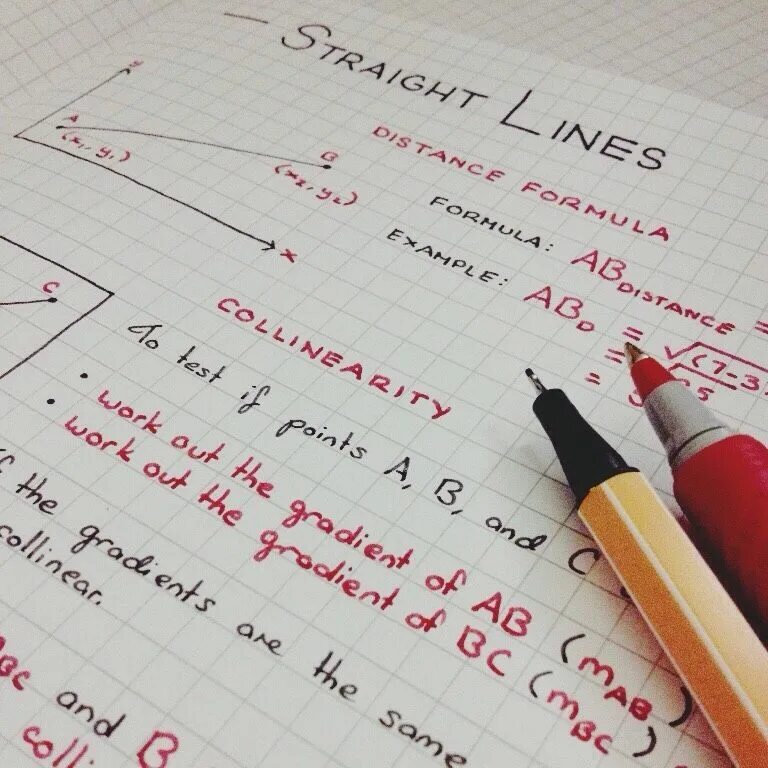 STRAIGHT LINES
y
A
(x₁, y₁)
B
(x₂, y₂)
x
DISTANCE FORMULA
FORMULA: AB DISTANCE =
EXAMPLE: AB D = √(7-3)
=
=
C
COLLINEARITY
To test if points A, B, and C
• work out the gradient of AB (m AB)
• work out the gradient of BC (m BC)
the gradients are the same
collinear.
BC and B